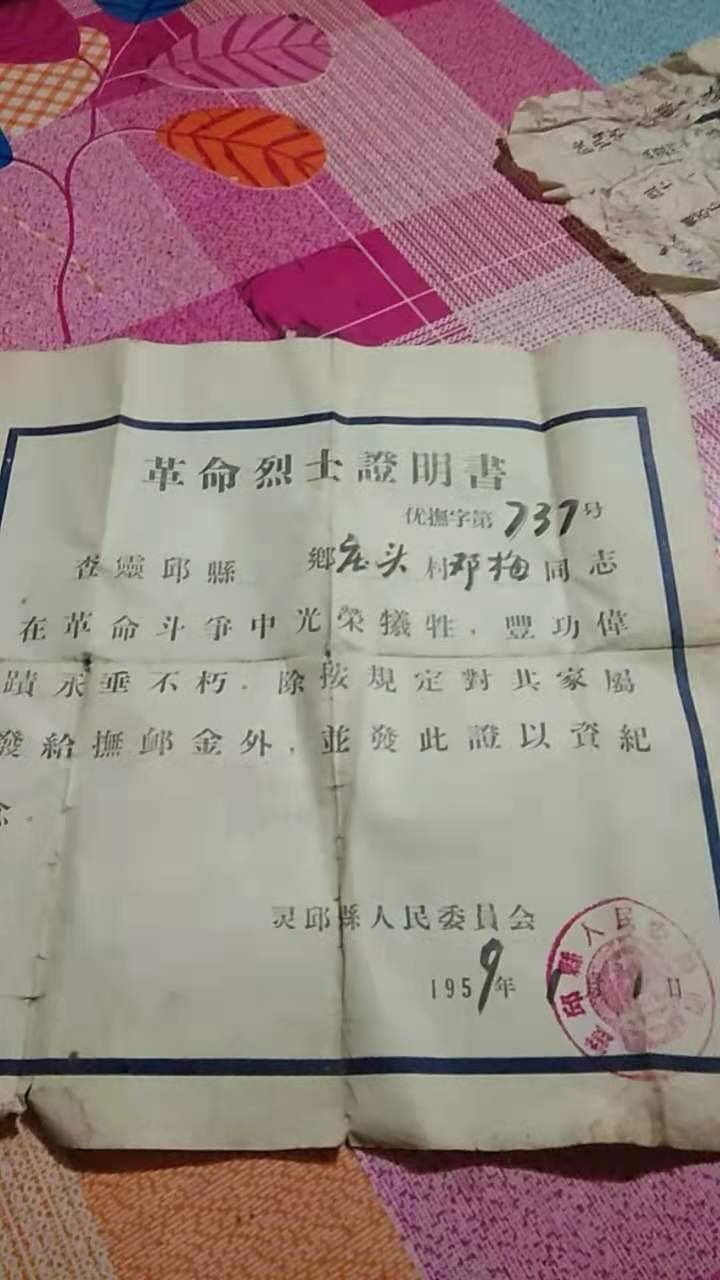 革命烈士證明書
优撫字第737号
查靈邱縣 鄉庄头村邓梅同志
在革命斗爭中光榮犠牲．豐功偉
蹟永垂不朽．除按規定對其家屬
發給撫卹金外．並發此證以資紀
念．
灵邱縣人民委員会
1959年1月1日